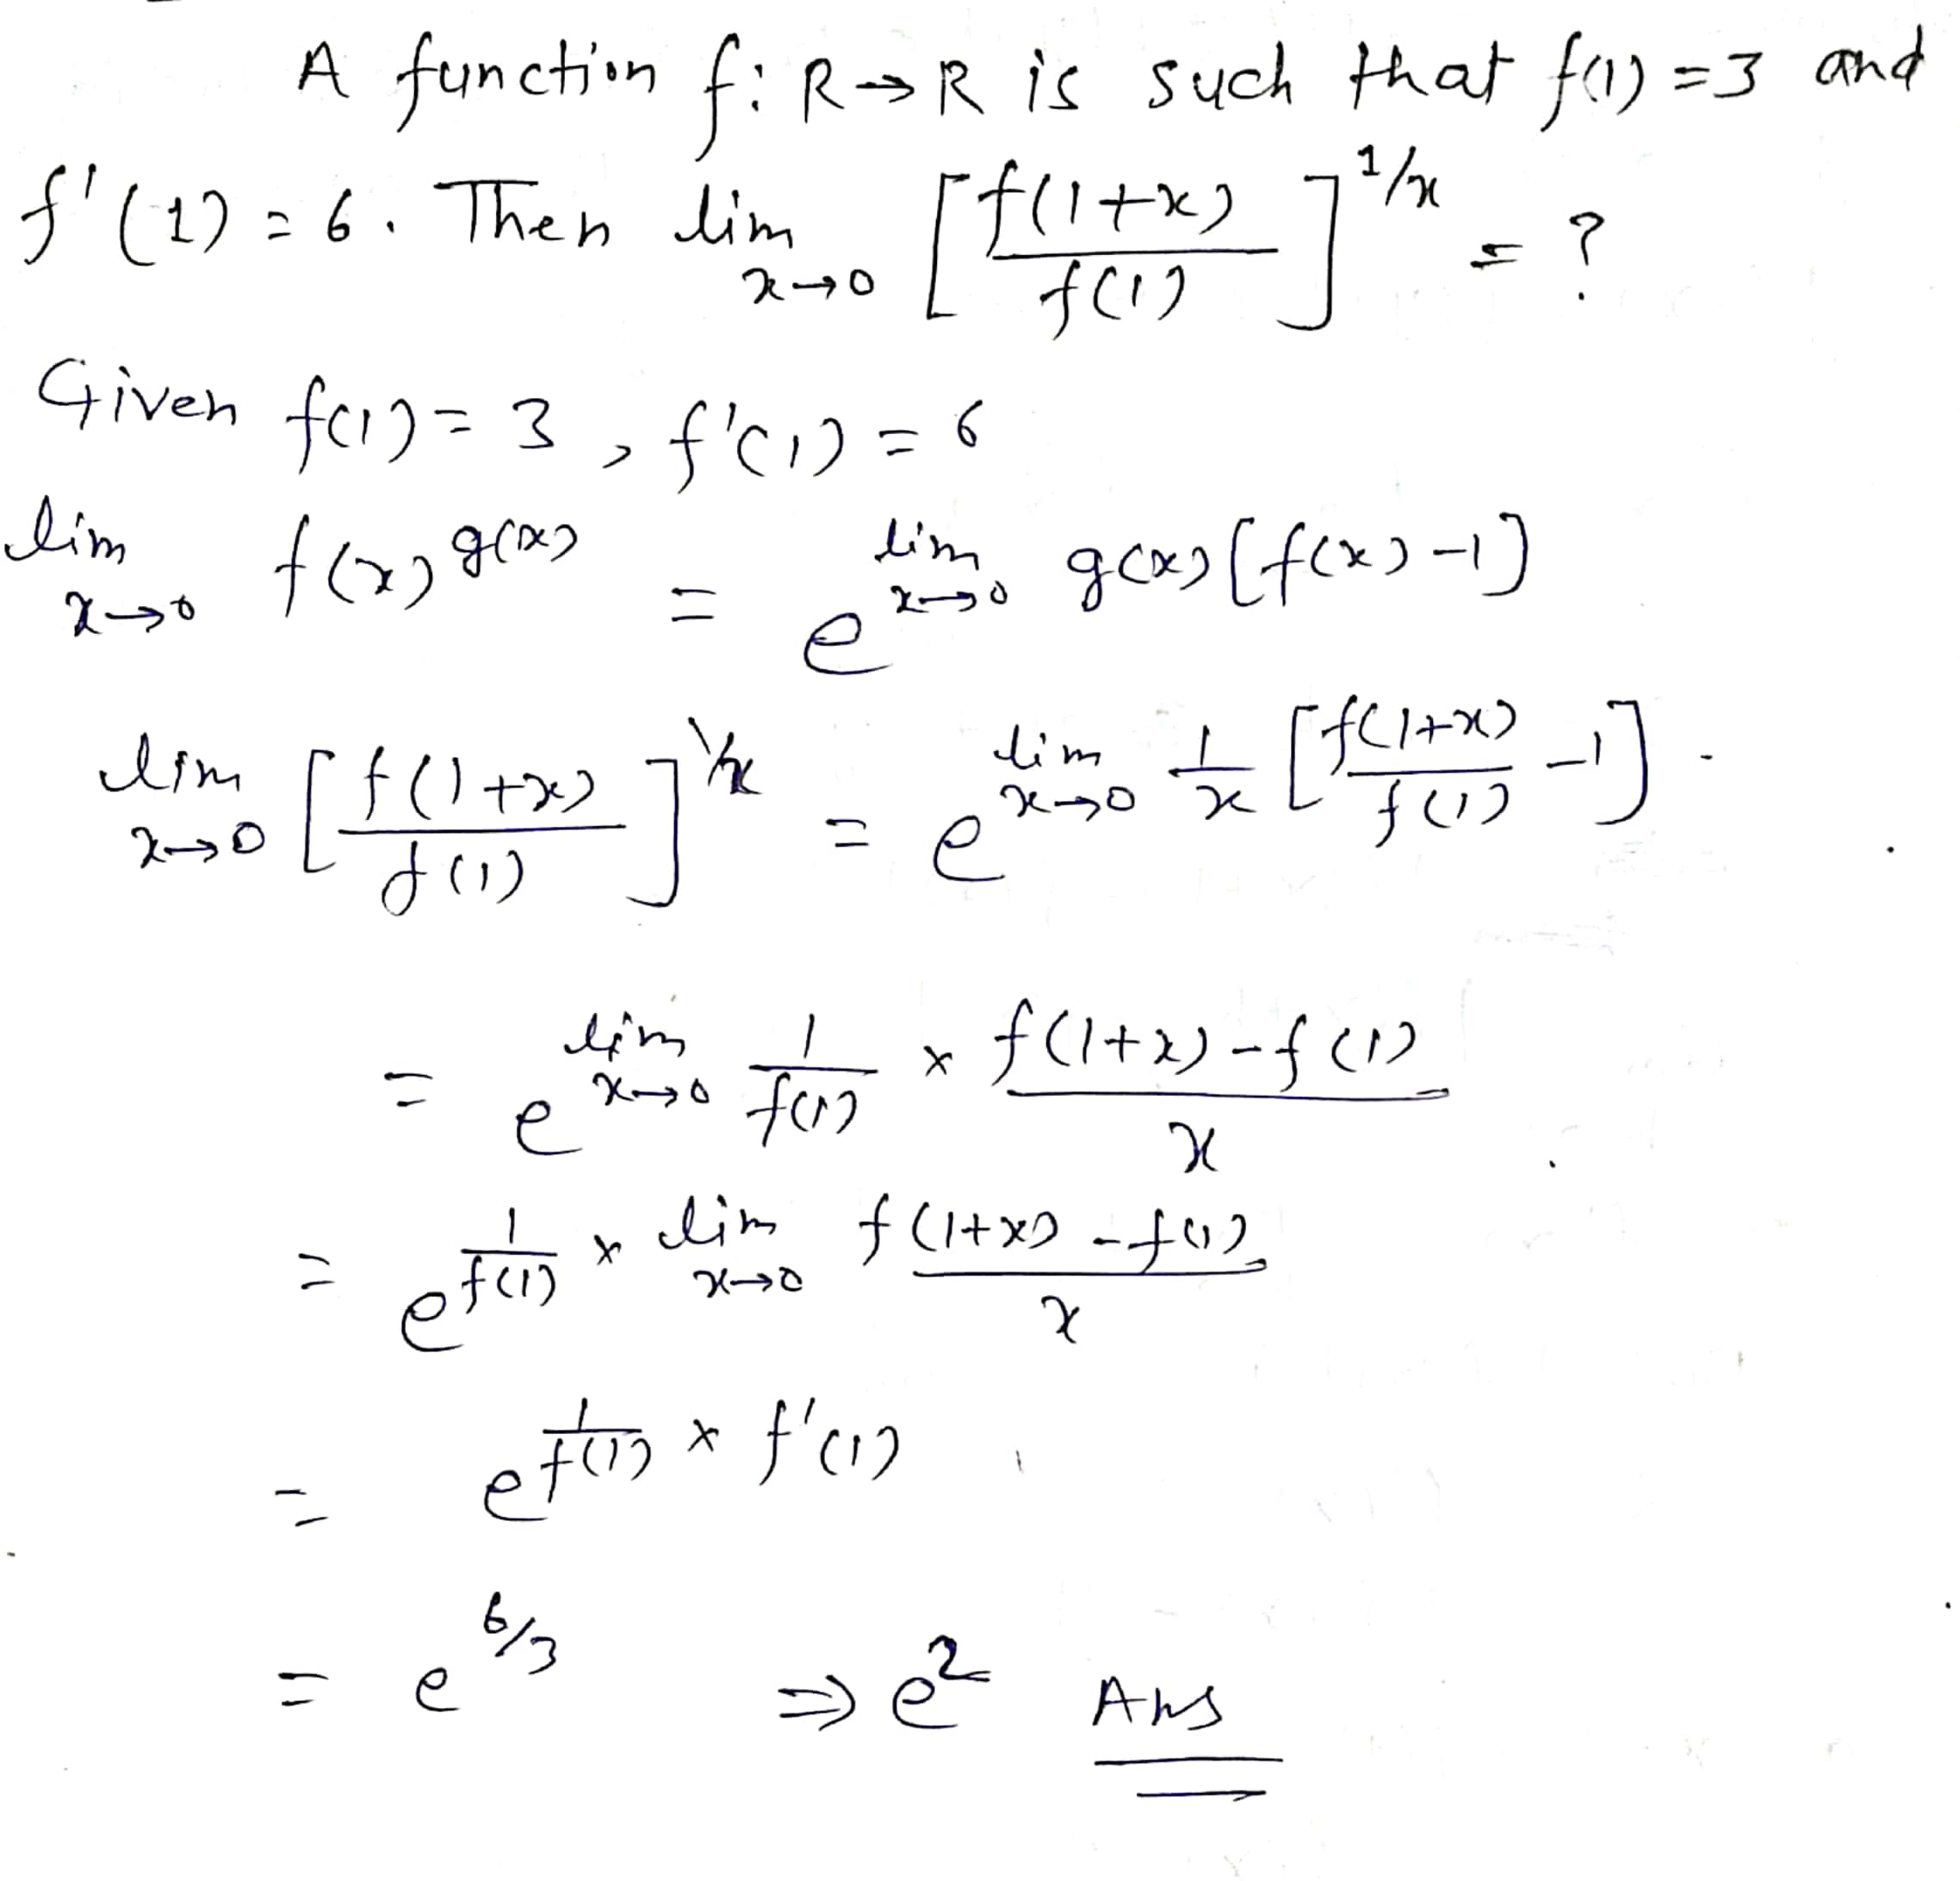 A function f: R→R is such that f(1) = 3 and
f'(1) = 6. Then lim x→0 [f(1+x)/f(1)]^1/x = ?
Given f(1) = 3, f'(1) = 6
lim x→0 f(x)^g(x) = e^lim x→0 g(x)[f(x)-1]
lim x→0 [f(1+x)/f(1)]^1/x = e^lim x→0 1/x [f(1+x)/f(1) -1]
= e^lim x→0 1/f(1) × f(1+x)-f(1)/x
= e^1/f(1) × lim x→0 f(1+x)-f(1)/x
= e^1/f(1) × f'(1)
= e^6/3 ⇒ e^2 Ans